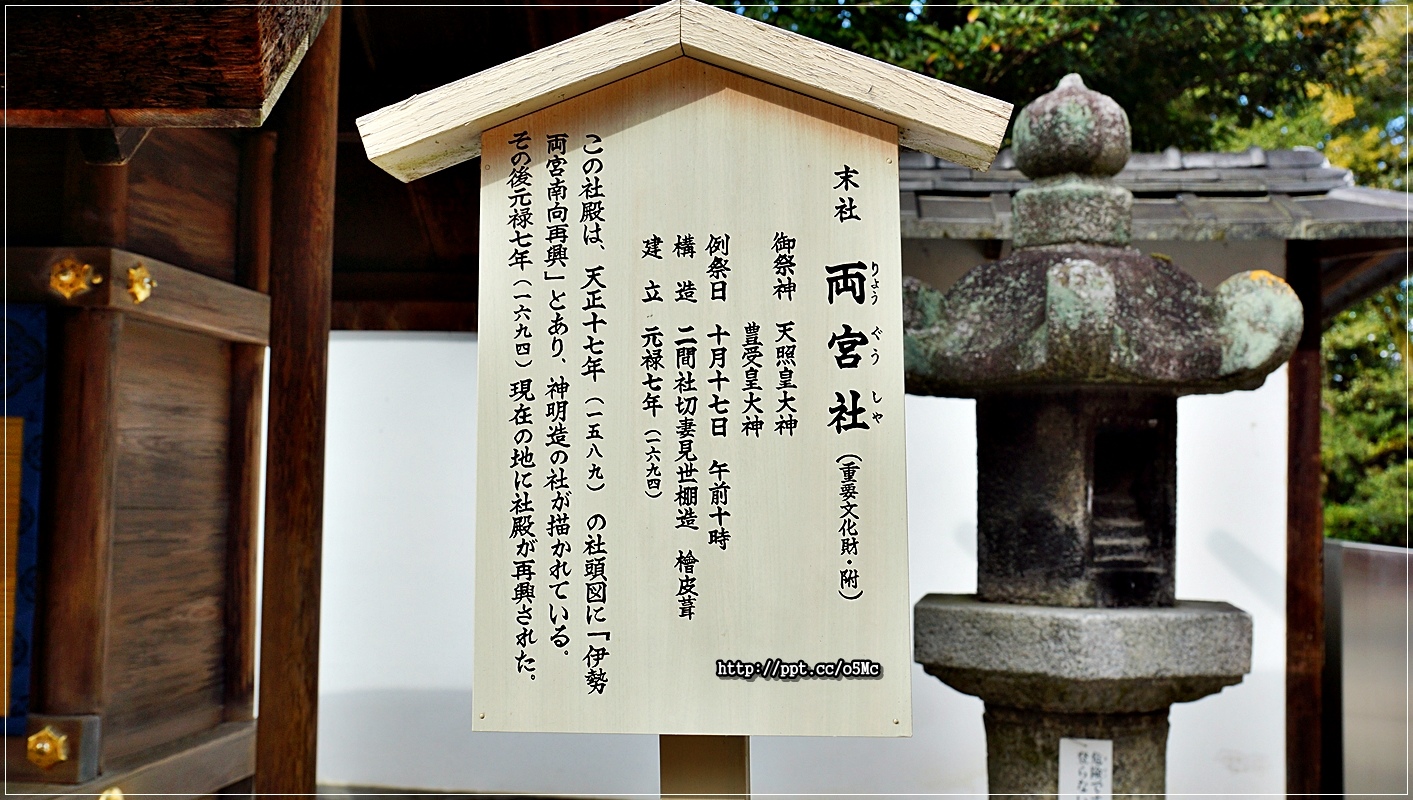 末社 両宮社（重要文化財・附）
りょう ぐう しゃ
御祭神 天照皇大神
豊受皇大神
例祭日 十月十七日 午前十時
構造 二間社切妻見世棚造 檜皮葺
建立 元禄七年（一六九四）
この社殿は、天正十七年（一五八九）の社頭図に「伊勢
両宮南向再興」とあり、神明造の社が描かれている。
その後元禄七年（一六九四）現在の地に社殿が再興された。
http://ppt.cc/o5Mc
危険です
登らない